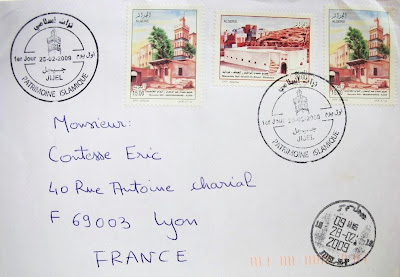 تراث إسلامي
1er Jour 25-02-2009 أول يوم
جيجل
JIJEL
PATRIMOINE ISLAMIQUE
الجزائر
ALGERIE
15.00
الجزائر
ALGERIE
الجزائر
ALGERIE
15.00
تراث إسلامي
1er Jour 25-02-2009 أول يوم
جيجل
JIJEL
PATRIMOINE ISLAMIQUE
Monsieur:
Contesse Eric
40 Rue Antoine charial
F 69003 Lyon
FRANCE
28-02
2009